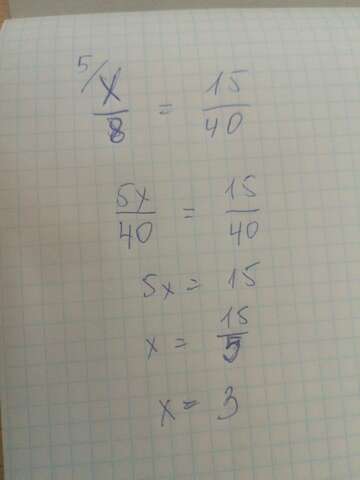 5/ x/8 = 15/40
5x/40 = 15/40
5x = 15
x = 15/5
x = 3